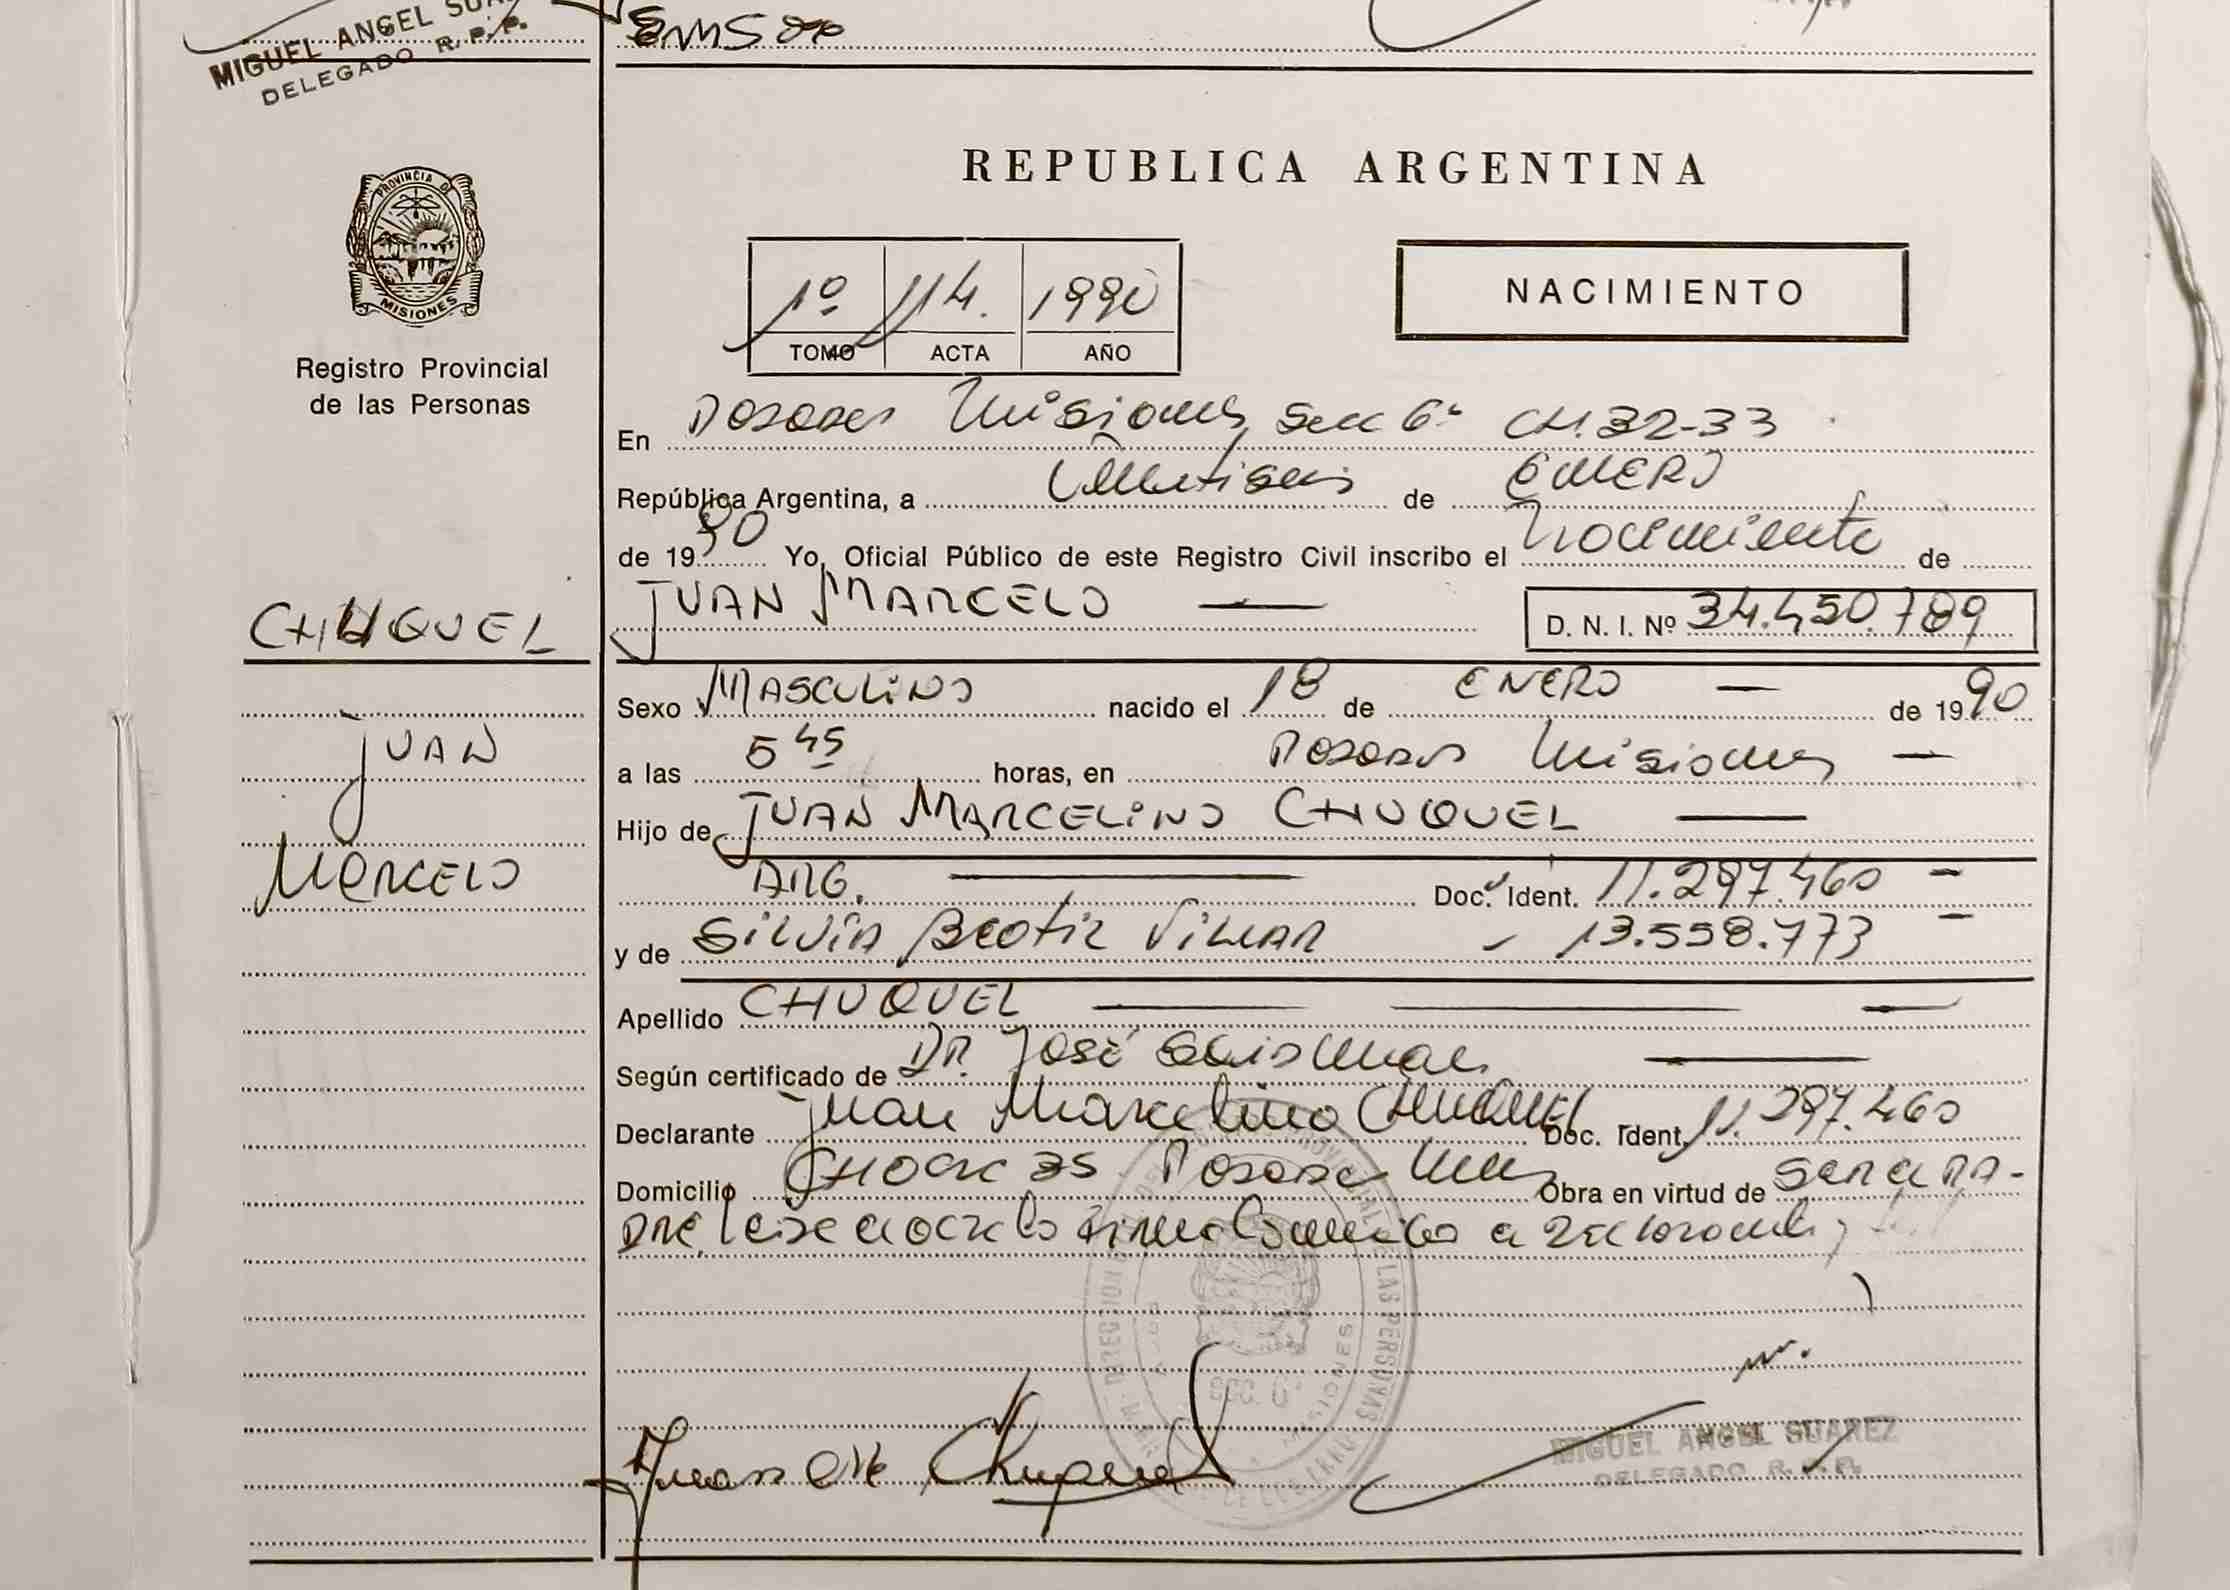 MIGUEL ANGEL
DELEGADO R. P. P.
PROVINCIA D
MISIONES
Registro Provincial
de las Personas
CHUQUEL
JUAN
MARCELO
REPUBLICA ARGENTINA
1º 114. 1990
TOMO ACTA AÑO
NACIMIENTO
En Posadas Misiones Secc 6ª CH. 32-33
República Argentina, a Veintiseis de ENERO
de 1990 Yo, Oficial Público de este Registro Civil inscribo el Nacimiento de
JUAN MARCELO — D. N. I. Nº 34.450.789
Sexo MASCULINO nacido el 18 de ENERO — de 1990
a las 5 45 horas, en Posadas Misiones —
Hijo de JUAN MARCELINO CHUQUEL —
ARG. — Doc. Ident. 11.297.460 –
y de SILVIA Beatriz VILLAR - 13.558.773 –
Apellido CHUQUEL —
Según certificado de DR. JOSÉ —
Declarante Juan Marcelino CHUQUEL Doc. Ident. 11.297.460
Domicilio 35 Posadas Mnes Obra en virtud de SER el PA-
DRE, leída el acta la firma conmigo el declarante,
SECC. 6
MISIONES
MIGUEL ANGEL SUAREZ
DELEGADO R. P. P.